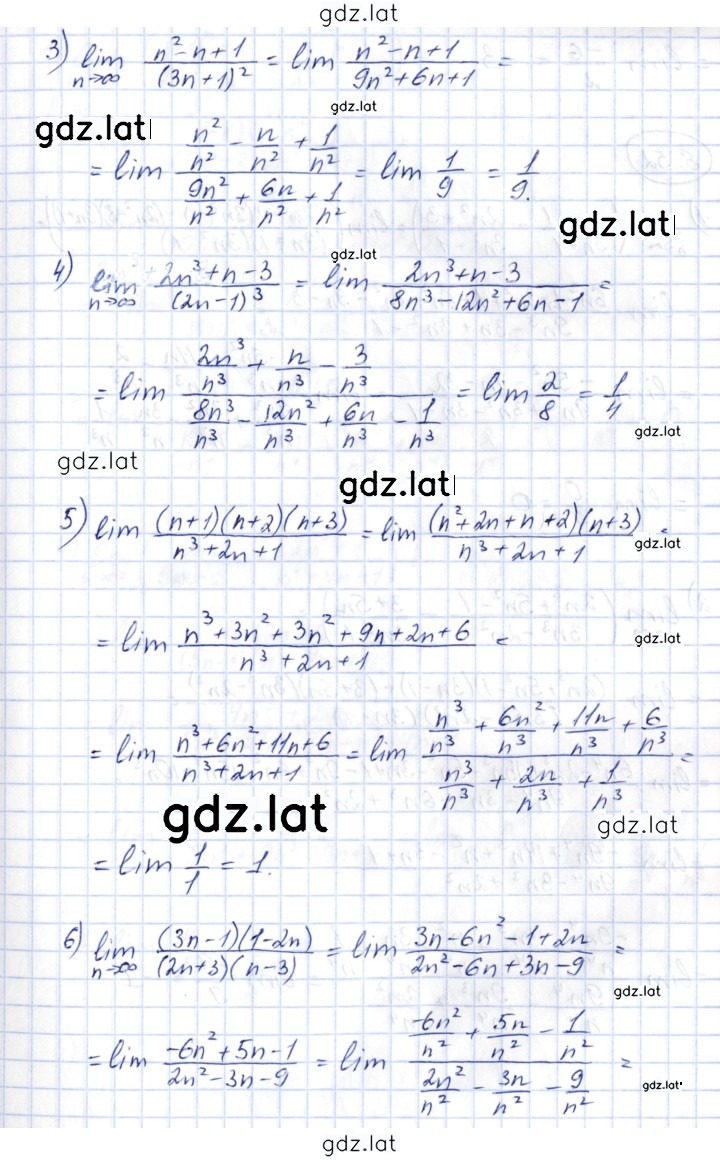 gdz.lat
3) lim n→∞ (n² - n + 1)/(3n+1)² = lim (n² - n + 1)/(9n² + 6n + 1) =
gdz.lat
gdz.lat
= lim (n²/n² - n/n² + 1/n²)/(9n²/n² + 6n/n² + 1/n²) = lim 1/9 = 1/9.
gdz.lat
gdz.lat
4) lim n→∞ (2n³ + n - 3)/(2n-1)³ = lim (2n³ + n - 3)/(8n³ - 12n² + 6n - 1) =
= lim (2n³/n³ + n/n³ - 3/n³)/(8n³/n³ - 12n²/n³ + 6n/n³ - 1/n³) = lim 2/8 = 1/4
gdz.lat
gdz.lat
gdz.lat
5) lim (n+1)(n+2)(n+3)/(n³ + 2n + 1) = lim (n² + 2n + n + 2)(n+3)/(n³ + 2n + 1) =
gdz.lat
= lim (n³ + 3n² + 3n² + 9n + 2n + 6)/(n³ + 2n + 1) =
gdz.lat
= lim (n³ + 6n² + 11n + 6)/(n³ + 2n + 1) = lim (n³/n³ + 6n²/n³ + 11n/n³ + 6/n³)/(n³/n³ + 2n/n³ + 1/n³) =
gdz.lat
gdz.lat
= lim 1/1 = 1.
6) lim n→∞ (3n-1)(1-2n)/(2n+3)(n-3) = lim (3n - 6n² - 1 + 2n)/(2n² - 6n + 3n - 9) =
gdz.lat
= lim (-6n² + 5n - 1)/(2n² - 3n - 9) = lim (-6n²/n² + 5n/n² - 1/n²)/(2n²/n² - 3n/n² - 9/n²) =
gdz.lat
gdz.lat